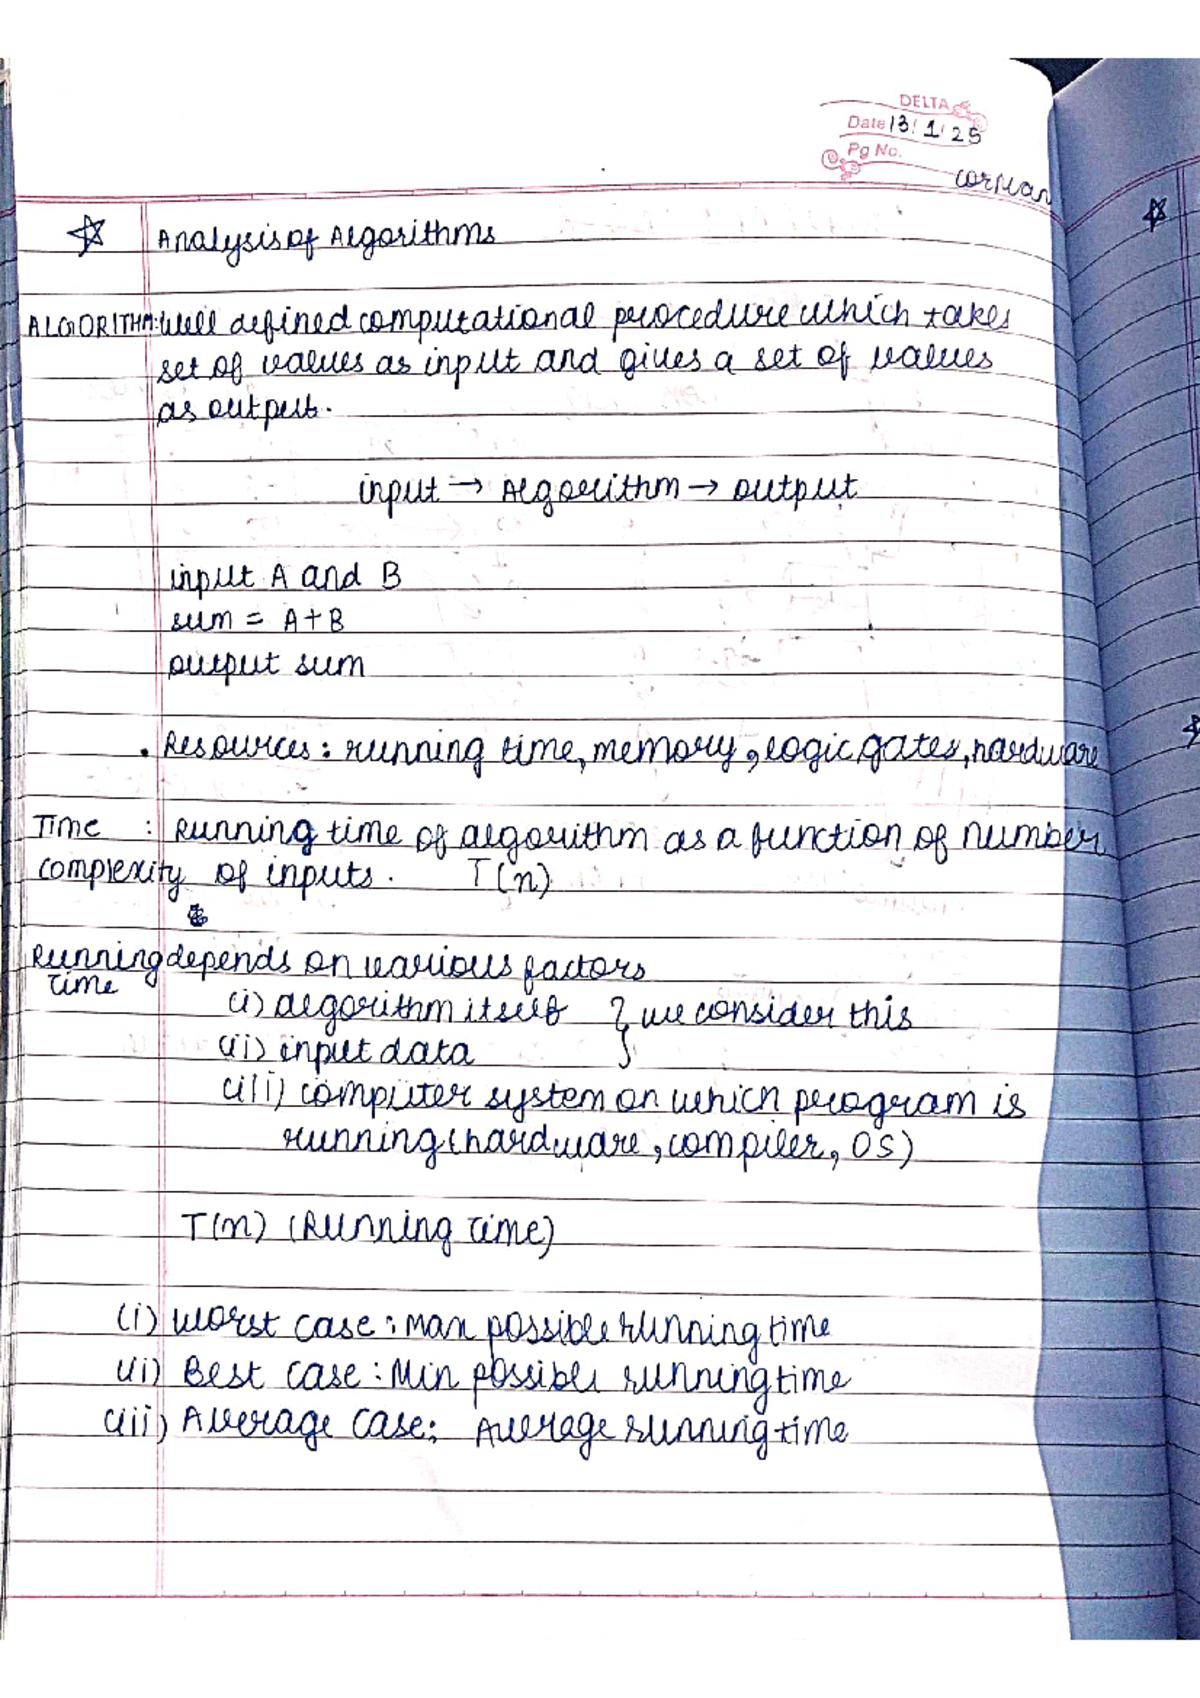 DELTA
Date 13/1/25
Pg No.
cormen
☆ Analysis of Algorithms
ALGORITHM: Well defined computational procedure which takes
set of values as input and gives a set of values
as output.
input → Algorithm → output
input A and B
sum = A+B
output sum
• Resources: running time, memory, logic gates, hardware
Time : Running time of algorithm as a function of number
complexity of inputs. T(n)
Running depends on various factors
time
(i) algorithm itself } we consider this
(ii) input data
(iii) computer system on which program is
running (hardware, compiler, OS)
T(n) (Running Time)
(i) Worst case: Max possible running time
(ii) Best case: Min possible running time
(iii) Average case: Average running time